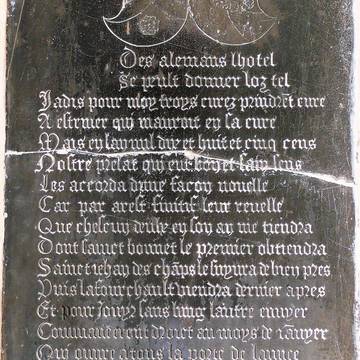 Des alemans lhotel
Se peult donner loz tel
Jadis pour moy troys curez prindrēt cure
A estriuer qui mauroit en sa cure
Mais en lan mil dix et huit et cinq cens
Nostre prelat qui eut bon et sain sens
Les acorda dune facon nouelle
Car par arest diffinit leur reuelle
Que chescun deulx en son an me tiendra
Dont sainct bonnet le premier obtiendra
Sainct iehan des chāps le suyura de bien pres
Puis latourrehault viendra dernier apres
Et pour Jouyr sans lung lautre enuyer
Commanderont droict au moys de Jāuyer
Qui ouure a tous la porte de lannee